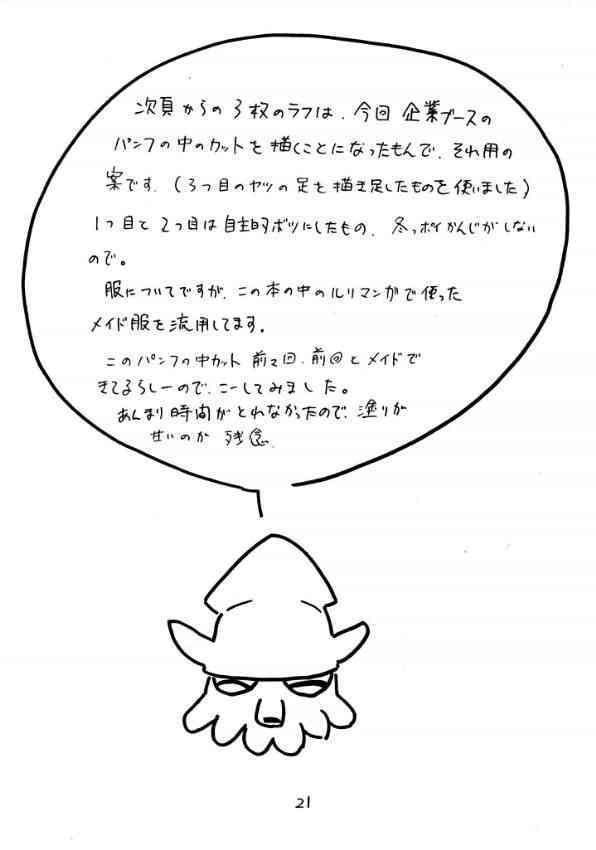 次頁からの3枚のラフは、今回 企業ブースの
パンフの中のカットを描くことになったもんで、それ用の
案です。(3つ目のヤツの足を描き足したものを使いました)
1つ目と2つ目は自主的ボツにしたもの、冬っポイかんじがしない
ので。
服についてですが、この本の中のルリマンガで使った
メイド服を流用してます。
このパンフの中カット 前々回、前回とメイドで
きてるらしーので、こーしてみました。
あんまり時間がとれなかったので、塗りが
せいのが 残念、
21